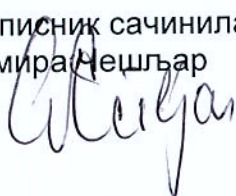 писник сачинила
мира Чешљар